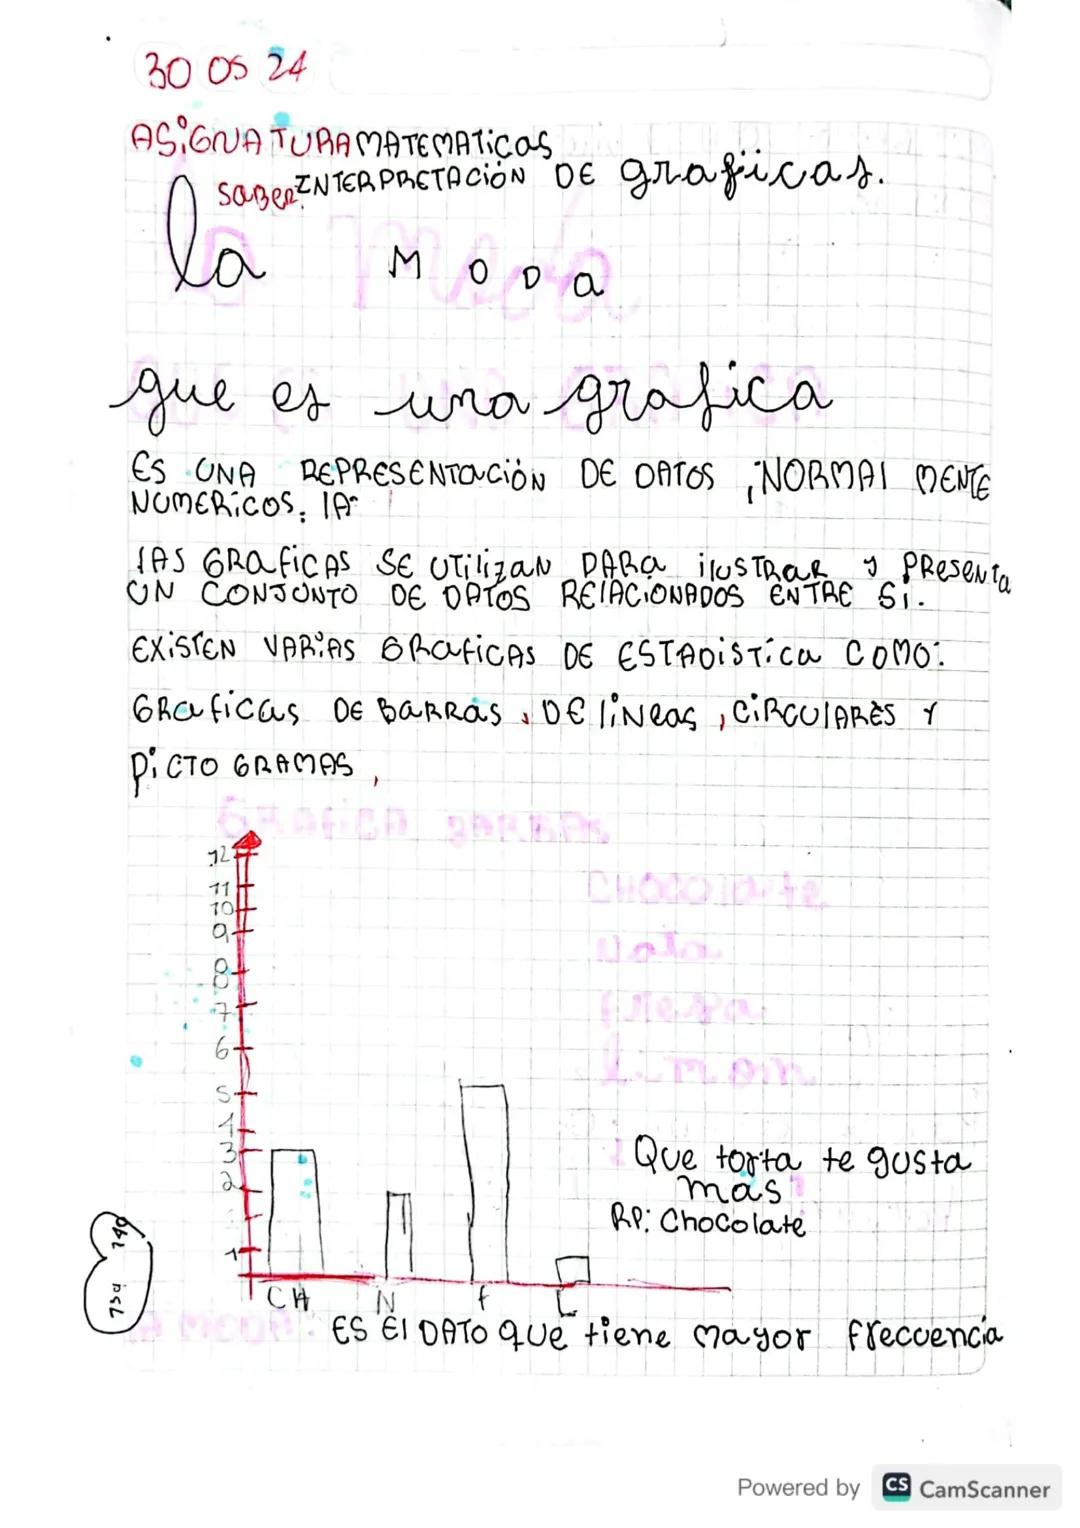 30 05 24
ASiGNATURA MATEMATicas
SaBeR INTERPRETACiÓN DE graficas.
la MODa
que es una grafica
ES UNA REPRESENTaCiÓN DE DATOS , NORMAl MENTE
NUMERiCOS. lA
lAS GRaficAS SE UTilizaN PARa ilUSTRaR y PReseNTa
UN CONJUNTO DE DATOS RElACiONADOS ENTRE Si.
EXiSTEN VARiAS GRaficAS DE ESTADiSTica COMO:
GRaficas DE BaRRas , DE liNeas , CiRCUlARES Y
PiCTO GRAMAS ,
GRAfiCA BARRAS
12
11
10
9
8
7
6
5
4
3
2
1
CHOCOlate
Nata
fresa
limon
Que torta te gusta
mas ?
RP: Chocolate
CH N f L
lA MODA: ES El DATO QUE tiene mayor frecuencia
139 140
Powered by CS CamScanner